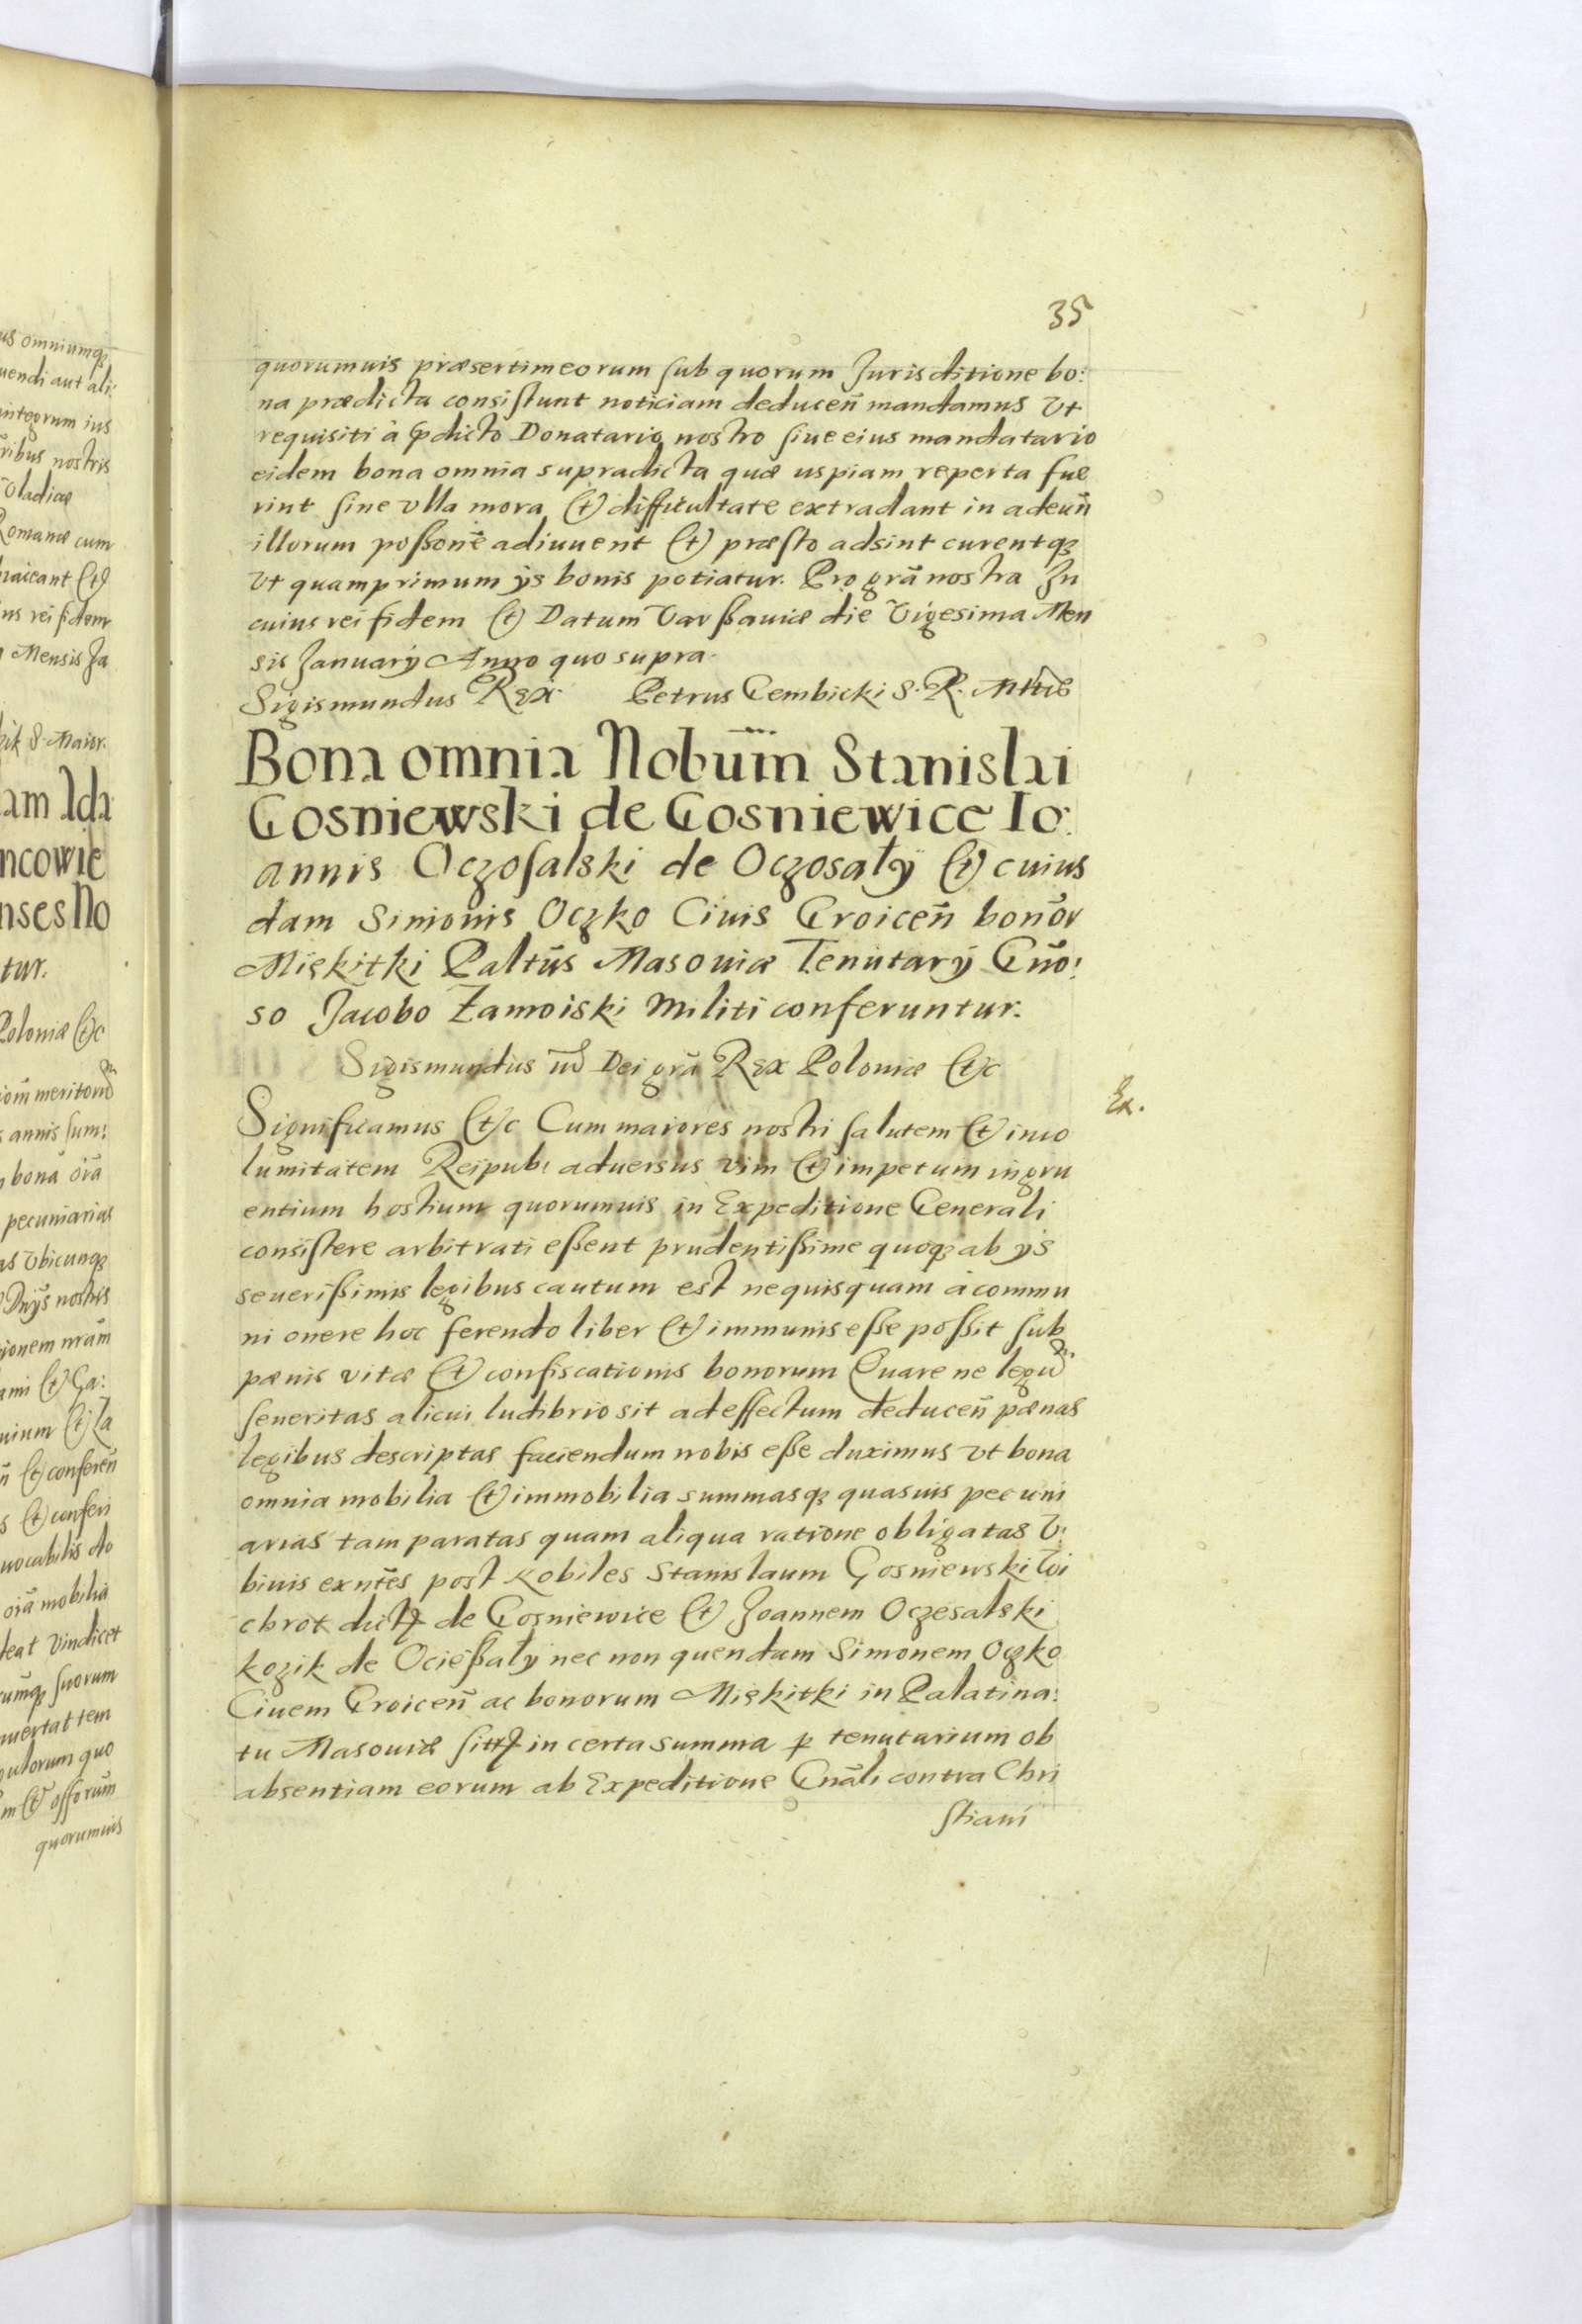 35
quorumuis præsertim eorum sub quorum Jurisditione bo:
na prædicta consistunt noticiam deducen̄ mandamus vt
requisiti à p̄dicto Donatario nostro siue eius mandatario
eidem bona omnia supradicta quæ uspiam reperta fue
rint sine vlla mora (et) difficultate extradant in adeun̄
illorum possone̅ adiuuent (et) præsto adsint curentq;
vt quamprimum ÿs bonis potiatur. Pro gr̄a nostra In
cuius rei fidem (et) Datum Varssauiæ die Vigesima Men
sis Januarÿ Anno quo supra.
Sigismundus Rex. Petrus Gembicki S. R. Mttis
Bona omnia Nobūm Stanislai
Gosniewski de Gosniewice Io:
annis Oczosalski de Oczosały (et) cuius
dam Simonis Oczko Ciuis Groicen̄ bonōr
Miękitki Paltūs Masouiæ Tenutarÿ Gn̄o:
so Jacobo Zamoiski Militi conferuntur.
Sigismundus iii͂ Dei gr̄a Rex Poloniæ (et)c
Ex.
Significamus (et)c Cum maiores nostri salutem (et) inco
lumitatem Reipub: aduersus vim (et) impetum ingru
entium hostium quorumuis in Expeditione Generali
consistere arbitrati essent prudentissime quoq; ab ÿs
seuerissimis legibus cautum est ne quisquam à commu
ni onere hoc ferendo liber (et) immunis esse possit sub
pænis vitæ (et) confiscationis bonorum Quare ne legū
seueritas alicui ludibrio sit ad effectum deducen̄ pænas
legibus descriptas faciendum nobis esse duximus vt bona
omnia mobilia (et) immobilia summasq; quasuis pecuni
arias tam paratas quam aliqua ratione obligatas V:
biuis exntēs post Nobiles Stanislaum Gosniewski Wi
chrot dictꝫ de Gosniewice (et) Joannem Oczesalski
Kozik de Ociessały nec non quendam Simonem Oczko
Ciuem Groicen̄ ac bonorum Miękitki in Palatina:
tu Masouiæ sittꝫ in certa summa p̱ tenutarium ob
absentiam eorum ab Expeditione Gn̄ali contra Chri
stiani